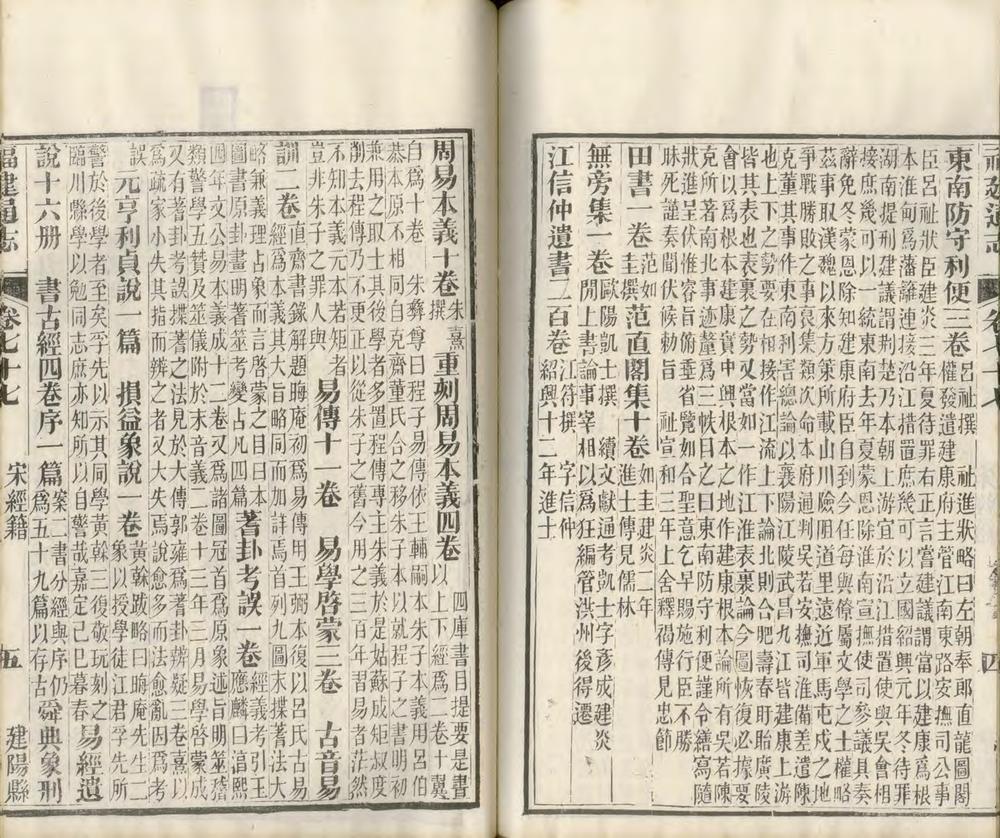 福建通志 卷七十七 四
東南防守利便三卷 呂祉撰 祉進狀略曰左朝奉郎直龍圖閣權發遣建康府主管江南東路安撫司公事
臣呂祉狀臣建炎三年夏待罪右正言嘗建議謂當以建康為根本淮甸為藩籬連接沿江措置庶幾可以立國紹興元年冬待罪
湖南提刑建議謂荊楚乃本朝上游宜於沿江措置使與吳會相接庶幾可以一統東南去年夏蒙恩除淮南宣撫使司參議具奏
辭免冬蒙恩除知建康府臣自到今任每與僚屬文學之士權略茲事取漢魏以來方策所載山川險阻道里遠近軍馬屯戍之地
爭戰勝敗之事裒集類次命本府通判吳若安撫司准備差遣陳克董其事作東南利害總論以襄陽江陵武昌九江皆建康上游
也上下之勢要在相接作江流上下論北則合肥壽春盱眙廣陵皆其表也表裏之勢又當如一作江淮表裏論今圖恢復必據要
會以為根本建康實中興根本之地作建康根本論所有吳若陳克所著南北事迹釐為三帙目之曰東南防守利便謹令繕寫隨
狀進呈伏俟睿旨俯垂省覽如合聖意乞早賜施行臣不勝昧死謹奏聞候敕旨 祉宣和三年上舍釋褐傳見忠節
田書一卷 范如圭撰 范直閣集十卷 如圭建炎二年進士傳見儒林
無旁集一卷 歐陽凱士撰 續文獻通考凱士字彥成建炎閒上書論事宰相以為狂編管洪州後得還
江信仲遺書二百卷 江符撰 字信仲紹興十二年進士
周易本義十卷 朱熹撰 重刻周易本義四卷 四庫書目提要是書以上下經為二卷十翼
自為十卷 朱彝尊曰程子易傳依王輔嗣本朱子本義用呂伯恭本原不相同自克齋董氏合之移朱子本以就程子之書明初
兼用之取士其後學者多置程傳專主朱義於是姑蘇成矩叔度削去程傳乃不更正以從朱子之舊今用之三百年習易者茫然
不知本義元本若矩者豈非朱子之罪人與 易傳十一卷 易學啓蒙三卷 古音易
訓二卷 直齋書錄解題晦庵初為易傳用王弼本後以呂氏古易經為本義其大旨略同而加詳焉首列九圖末揲蓍法大
略兼義理占象而言啓蒙之目曰本圖書原卦畫明蓍策考變占凡四篇 蓍卦考誤一卷 經義考引王應麟曰淳熙
四年文公易本義成十二卷又為諸圖冠首為原象述旨明筮稽類警學五贊及筮儀附於末音義二卷十三年三月易學啓蒙成
又有蓍卦考誤揲蓍之法見於大傳郭雍為蓍卦辨疑三卷熹以為疏家小失其指而辨之者又大失焉說愈多而法愈亂因為考
誤 元亨利貞說一篇 損益象說一卷 黃榦跋略曰晦庵先生二象以授學徒江君孚先所
警於後學者至矣孚先以示其同學黃榦三復敬玩刻之臨川縣學以勉同志庶亦知所以自警哉嘉定己巳暮春 易經遺
說十六册 書古經四卷序一篇 案二書分經與序仍為五十九篇以存古 舜典象刑
福建通志 卷七十七 宋經籍 五 建陽縣